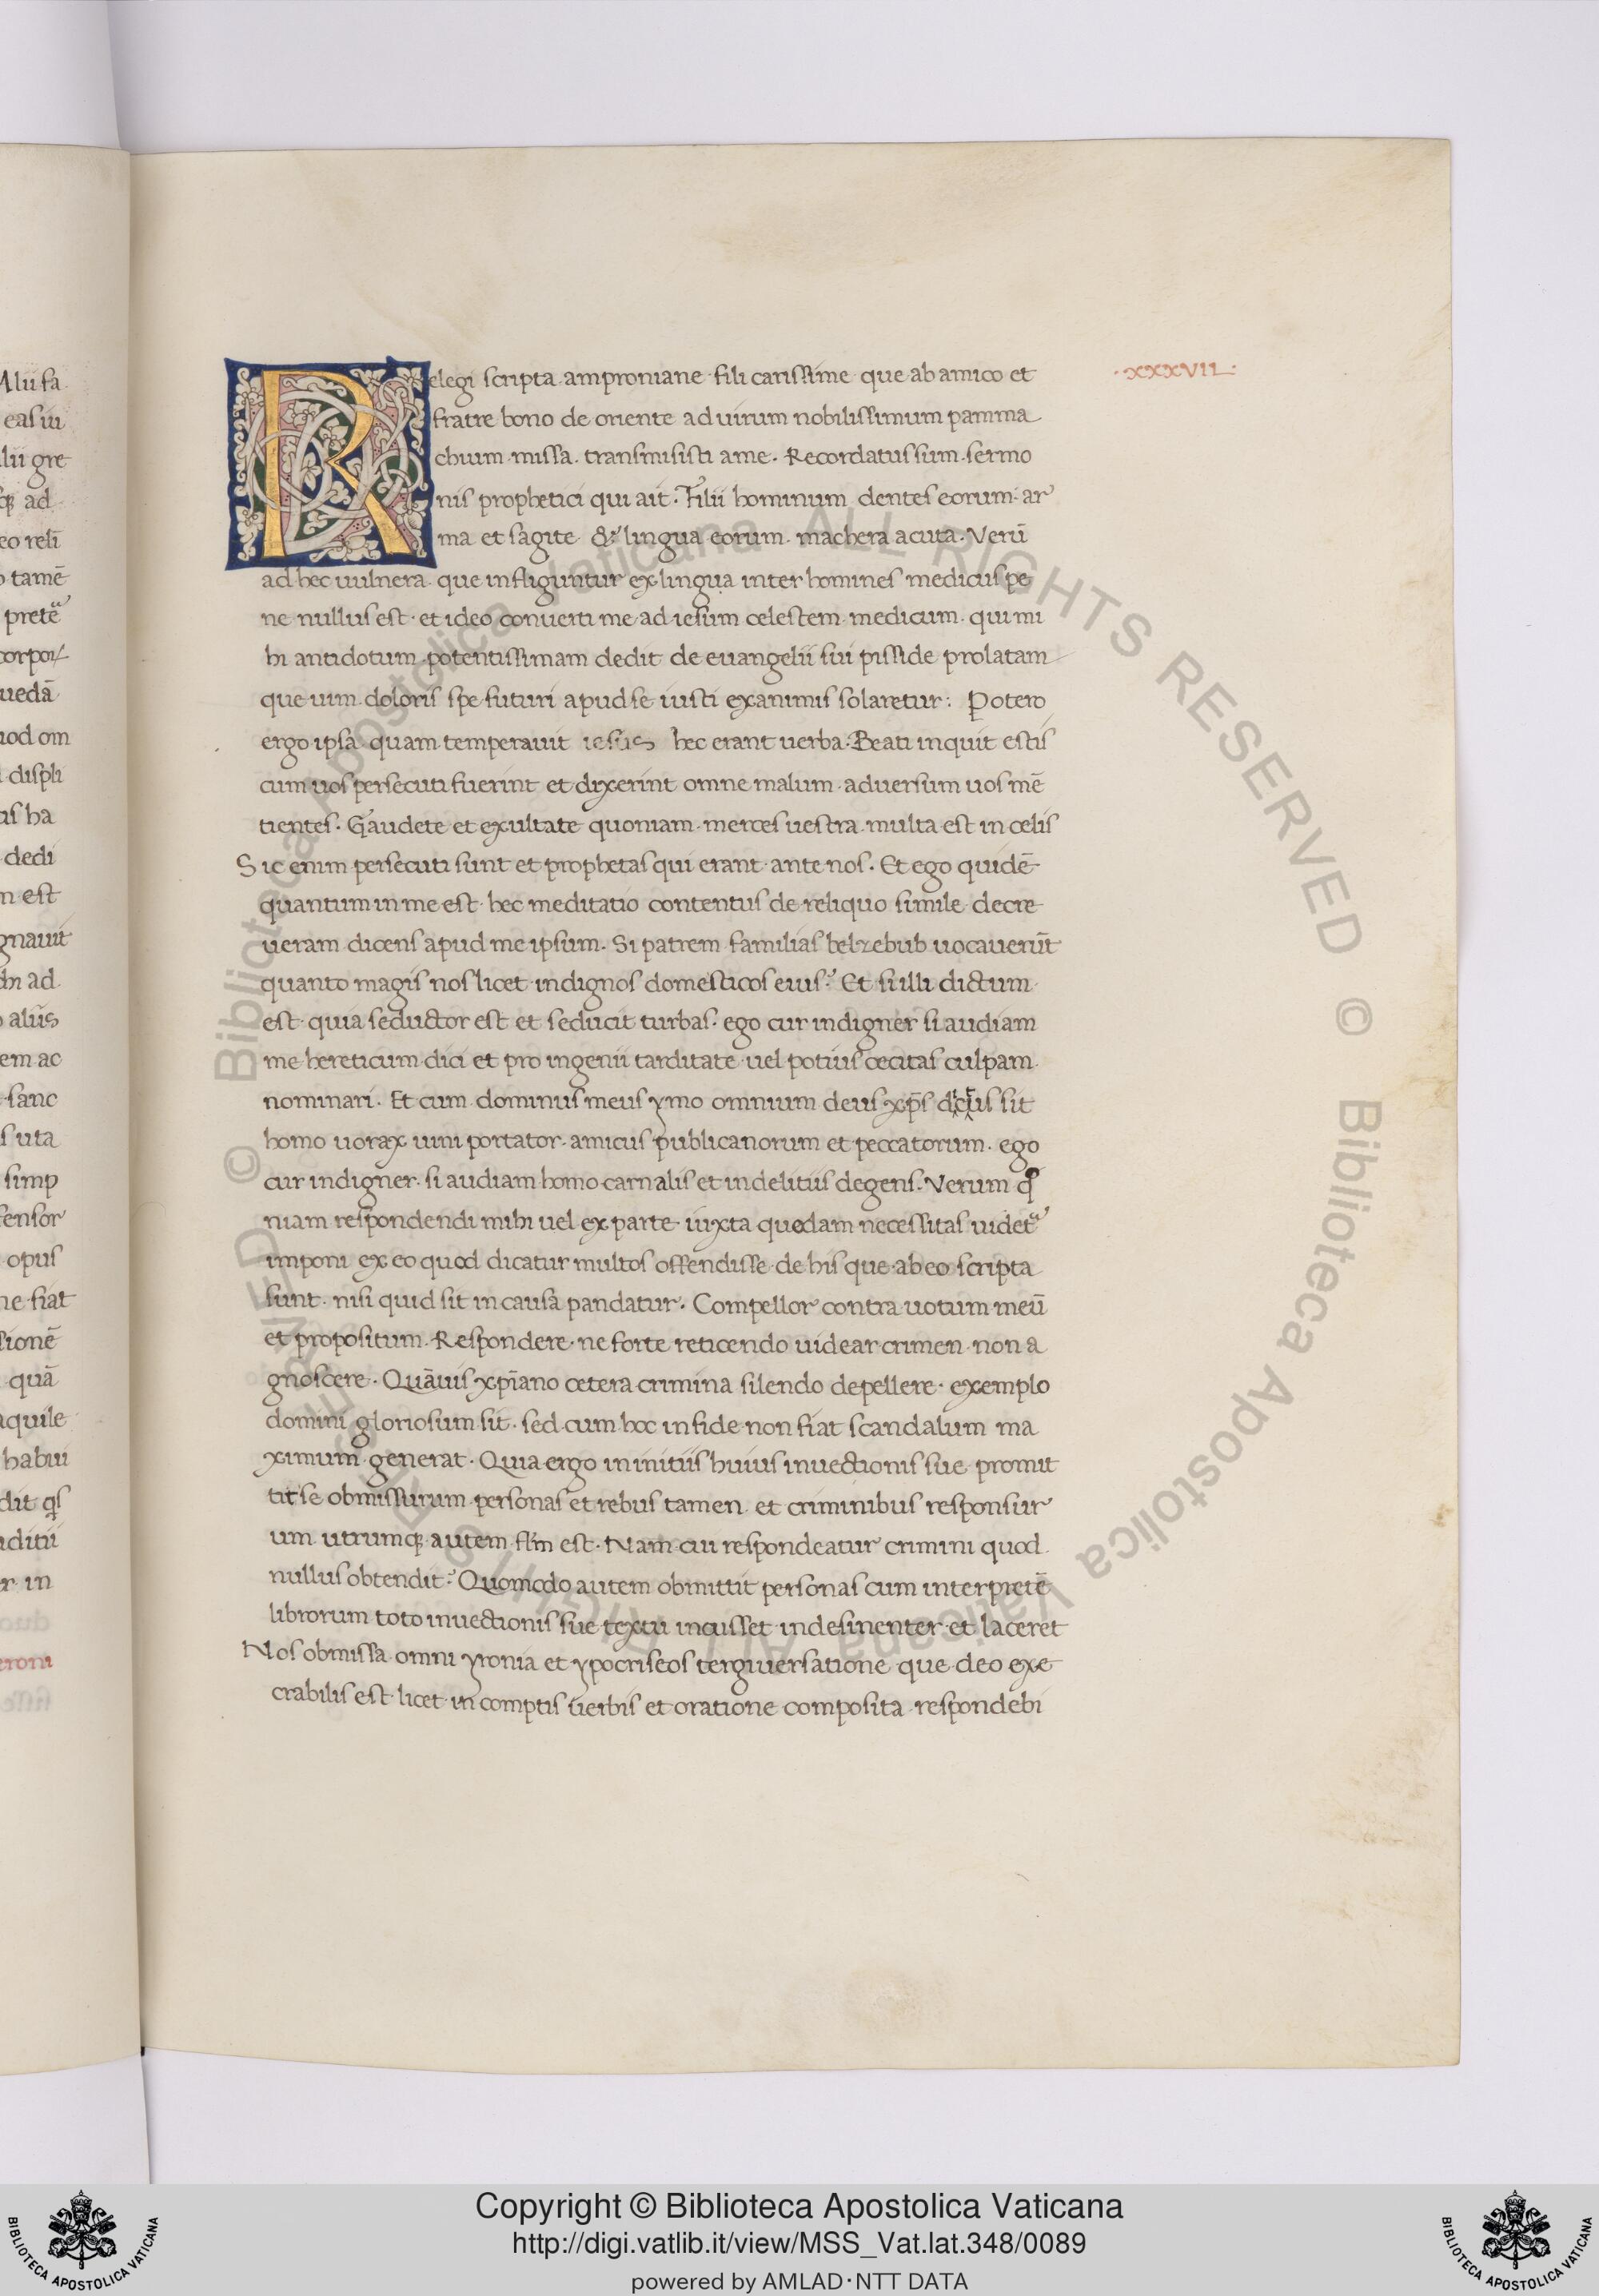 Relegi scripta amproniane fili carissime que ab amico et
·XXXVII·
fratre bono de oriente ad uirum nobilissimum pamma
chium missa. transmisisti ame. Recordatus sum sermo
nis prophetici qui ait. Filii hominum dentes eorum ar
ma et sagite & lingua eorum machera acuta. Verū
ad hec uulnera que infliguntur ex lingua inter homines medicus pe
ne nullus est et ideo conuerti me ad iesum celestem medicum. qui mi
hi antidotum potentissimam dedit de euangelii sui pisside prolatam
que uim doloris spe futuri apud se iusti examinis solaretur: Potero
ergo ipsa quam temperauit iesus hec erant uerba. Beati inquit estis
cum uos persecuti fuerint et dixerint omne malum aduersum uos mē
tientes. Gaudete et exultate quoniam merces uestra multa est in celis
Sic enim persecuti sunt et prophetas qui erant ante nos. Et ego quidē
quantum in me est hec meditatio contentus de reliquo simile decre
ueram dicens apud me ipsum. Si patrem familias belzebub uocauerūt
quanto magis nos licet indignos domesticos eius? Et si illi dictum
est quia seductor est et seducit turbas. ego cur indigner si audiam
me hereticum dici et pro ingenii tarditate uel potius cecitas culpam
nominari. Et cum dominus meus ymo omnium deus xp̄s sit
homo uorax uini portator amicus publicanorum et peccatorum. ego
cur indigner si audiam homo carnalis et in delitiis degens. Verum qº
niam respondendi mihi uel ex parte iuxta quedam necessitas uidetᵃ
imponi ex eo quod dicatur multos offendisse de his que ab eo scripta
sunt nisi quid sit in causa pandatur. Compellor contra uotum meū
et propositum. Respondere ne forte reticendo uidear crimen non a
gnoscere. Quāuis xp̄iano cetera crimina silendo depellere exemplo
domini gloriosum sit. sed cum hoc in fide non fiat scandalum ma
ximum generat. Quia ergo in initiis huius inuectionis sue promit
tit se obmissurum personas et rebus tamen et criminibus responsur
um utrumq; autem est. Nam cui respondeatur crimini quod
nullus obtendit? Quomodo autem obmittit personas cum interpretē
librorum toto inuectionis sue textu incusset indesinenter et laceret
Nos obmissa omni yronia et ypocriseos tergiuersatione que deo exe
crabilis est licet in comptis uerbis et oratione composita respondebi
lii gre
eas ui
ad
tamē
pretᵃ
uedā
displi
ha
dedi
est
gnauit
ad
em ac
sanc
uta
simp
fensor
opus
ne fiat
sionē
quā
aquile
habui
in
© Biblioteca Apostolica Vaticana ALL RIGHTS RESERVED
© Biblioteca Apostolica Vaticana ALL RIGHTS RESERVED
Copyright © Biblioteca Apostolica Vaticana
http://digi.vatlib.it/view/MSS_Vat.lat.348/0089
powered by AMLAD·NTT DATA
BIBLIOTECA APOSTOLICA VATICANA
BIBLIOTECA APOSTOLICA VATICANA